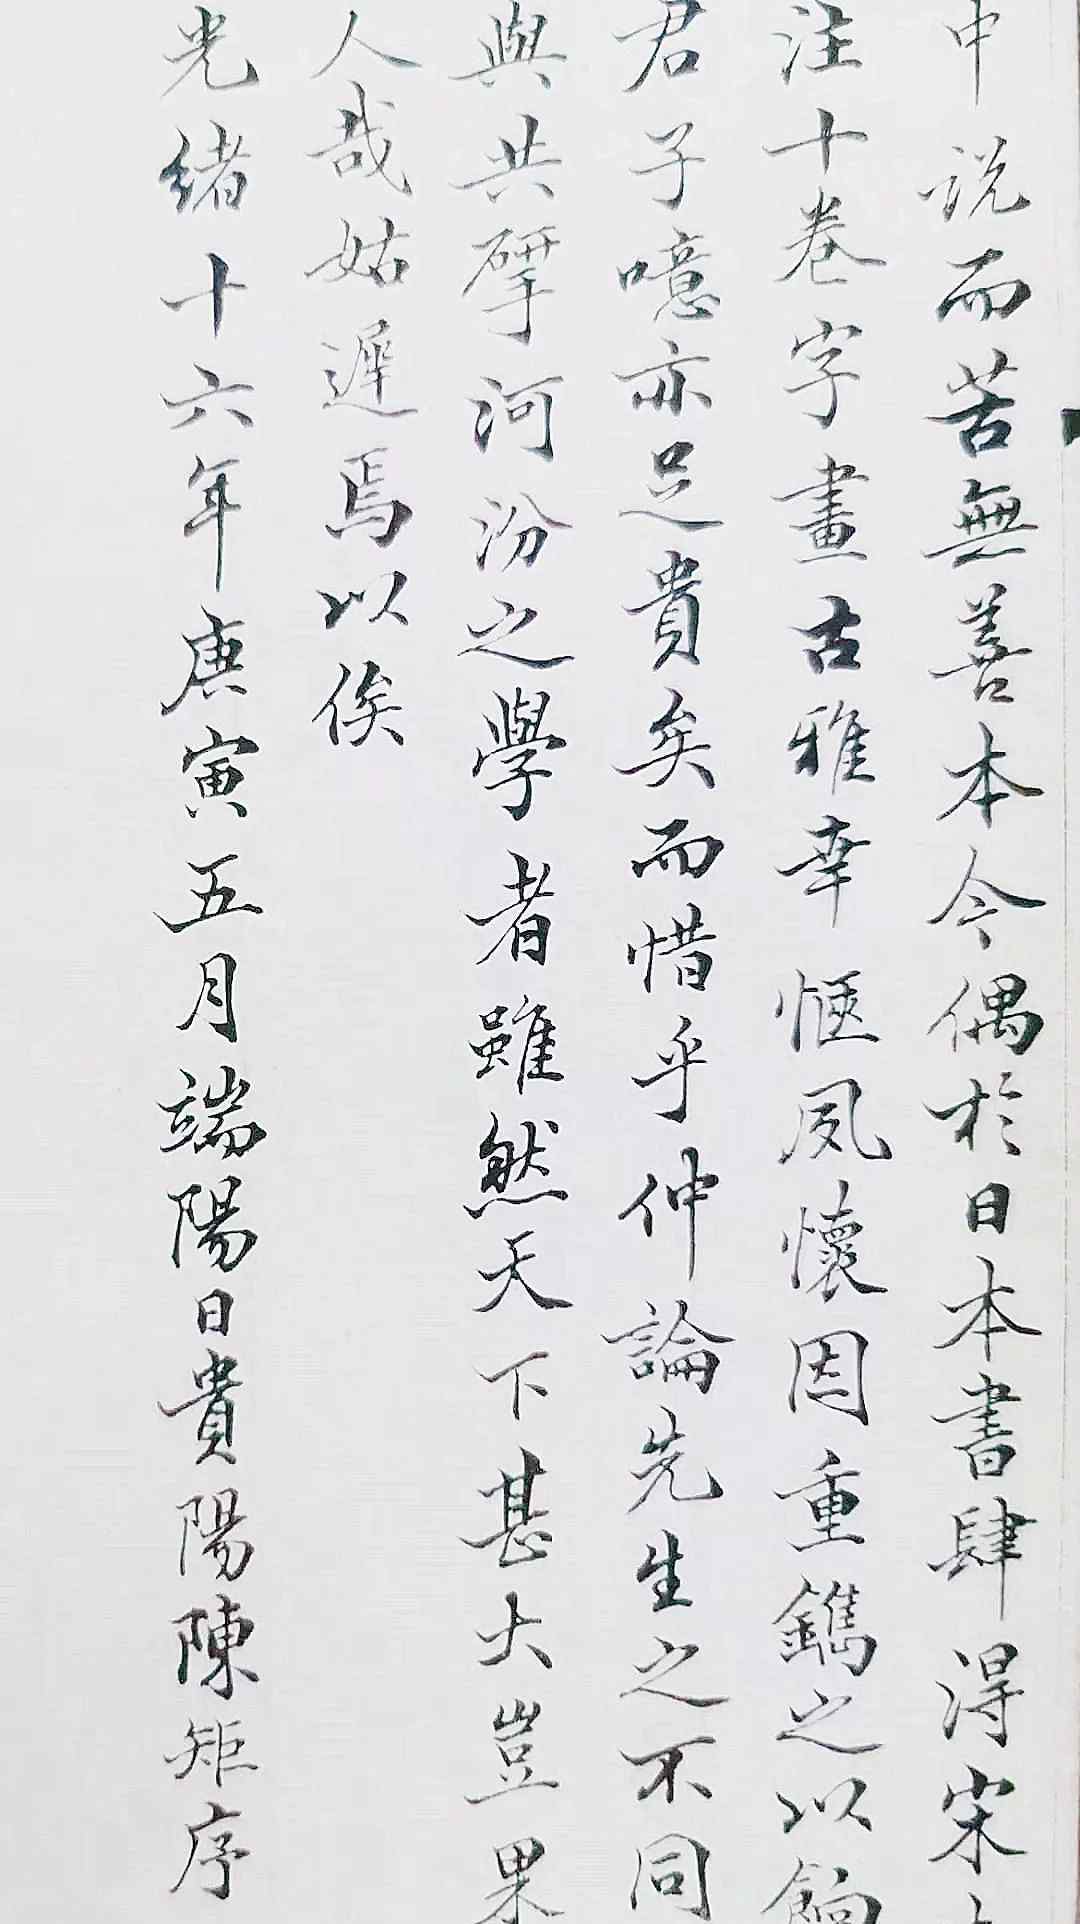 中説而苦無善本今偶於日本書肆得宋
注十卷字畫古雅幸愜夙懷因重鐫之以餉
君子噫亦足貴矣而惜乎仲論先生之不同
與共揅河汾之學者雖然天下甚大豈果
人哉姑遲焉以俟
光緒十六年庚寅五月端陽日貴陽陳矩序